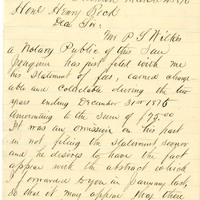 Honl Henry Rock
Dear Sir:
Mr P. D. Wilkes
a Notary Public of this San
Joaquin has just filed with me
his statement of fees, earned charge
able and Collectable during the two
years ending December 31st 1875
Amounting to the sum of $75.00
It was an omission on his part
in not filing the statement sooner
and he desires to have the fact
appear with the abstract which
I forwarded to you in January last,
so that it may appear that there